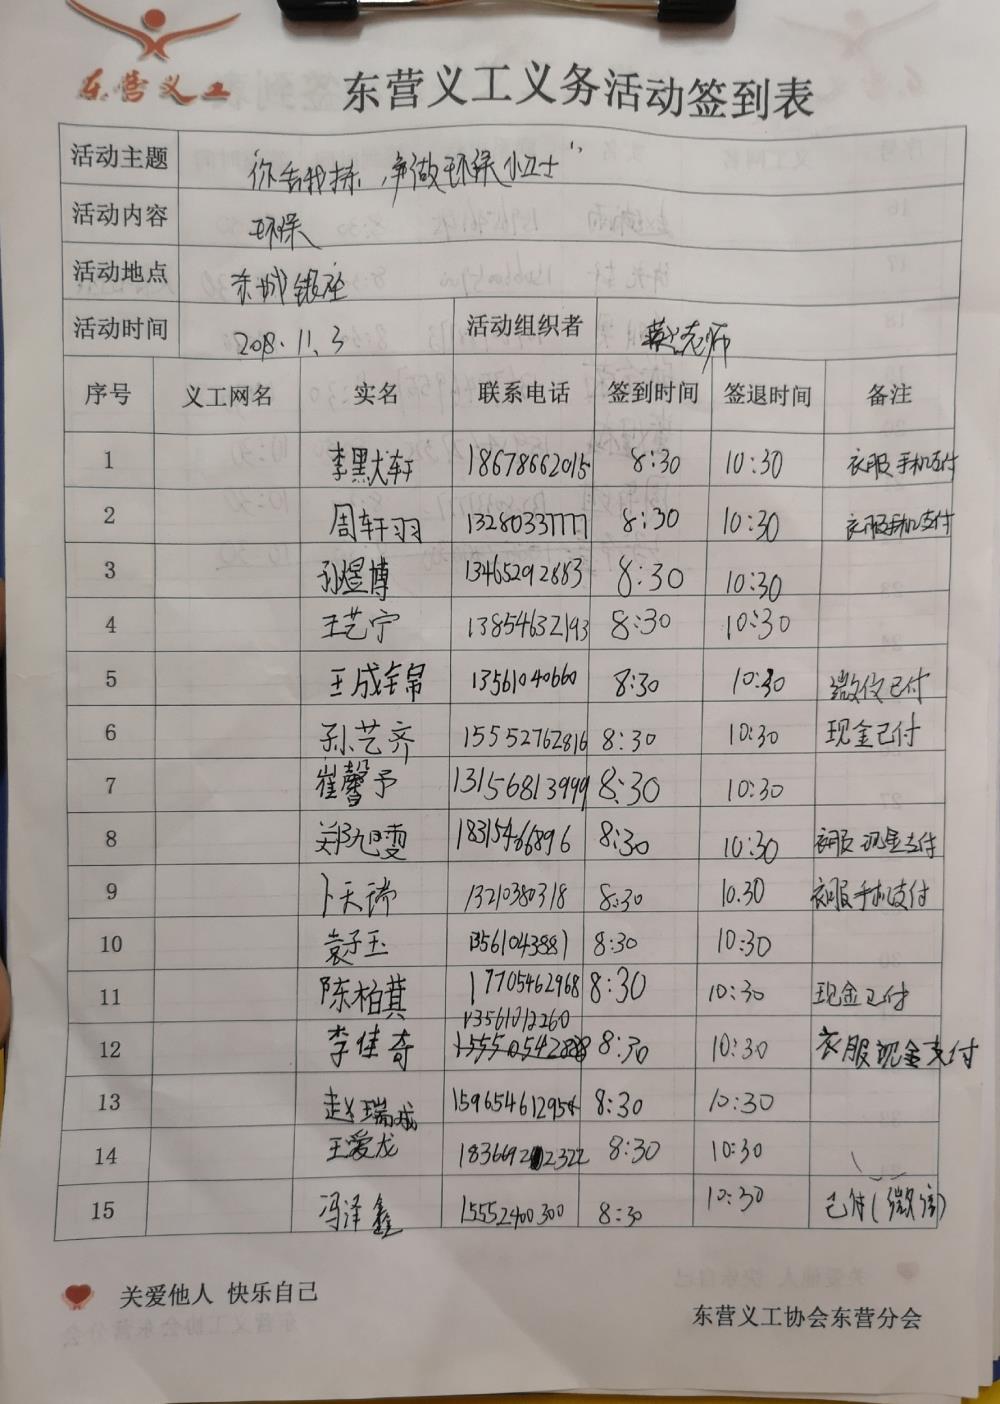 东营义工
东营义工义务活动签到表
活动主题 "你丢我捡,争做环保小卫士"
活动内容 环保
活动地点 东城银座
活动时间 2018.11.3 活动组织者 蔡老师
序号 义工网名 实名 联系电话 签到时间 签退时间 备注
1 李黑犬轩 18678662015 8:30 10:30 衣服手机支付
2 周轩羽 13280337777 8:30 10:30 衣服手机支付
3 孙煜博 13465292883 8:30 10:30
4 王艺宁 13854632193 8:30 10:30
5 王成锦 13561040660 8:30 10:30 微信已付
6 孙艺齐 15552762816 8:30 10:30 现金已付
7 崔馨予 13156813999 8:30 10:30
8 郑旭雯 18315466896 8:30 10:30 衣服现金支付
9 卜天瑞 13210380318 8:30 10.30 衣服手机支付
10 袁子玉 13561043881 8:30 10:30
11 陈柏萁 17705462968 8:30 10:30 现金已付
12 李佳奇 13561012260 8:30 10:30 衣服现金支付
13 赵瑞成 15965461295 8:30 10:30
14 王爱龙 8:30 10:30
15 冯泽鑫 15552400300 8:30 10:30 已付(微信)
关爱他人 快乐自己
东营义工协会东营分会